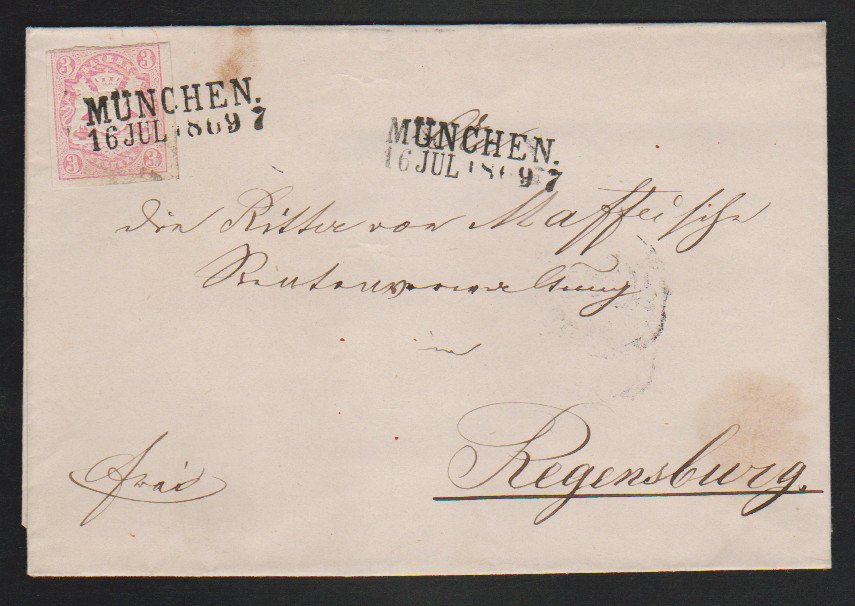 3 3
MÜNCHEN. MÜNCHEN.
16 JUL 1869 7 16 JUL 1869 7
3 3
An
die Ritter von Maffeische
Rentenverwaltung
in
Regensburg.
frei